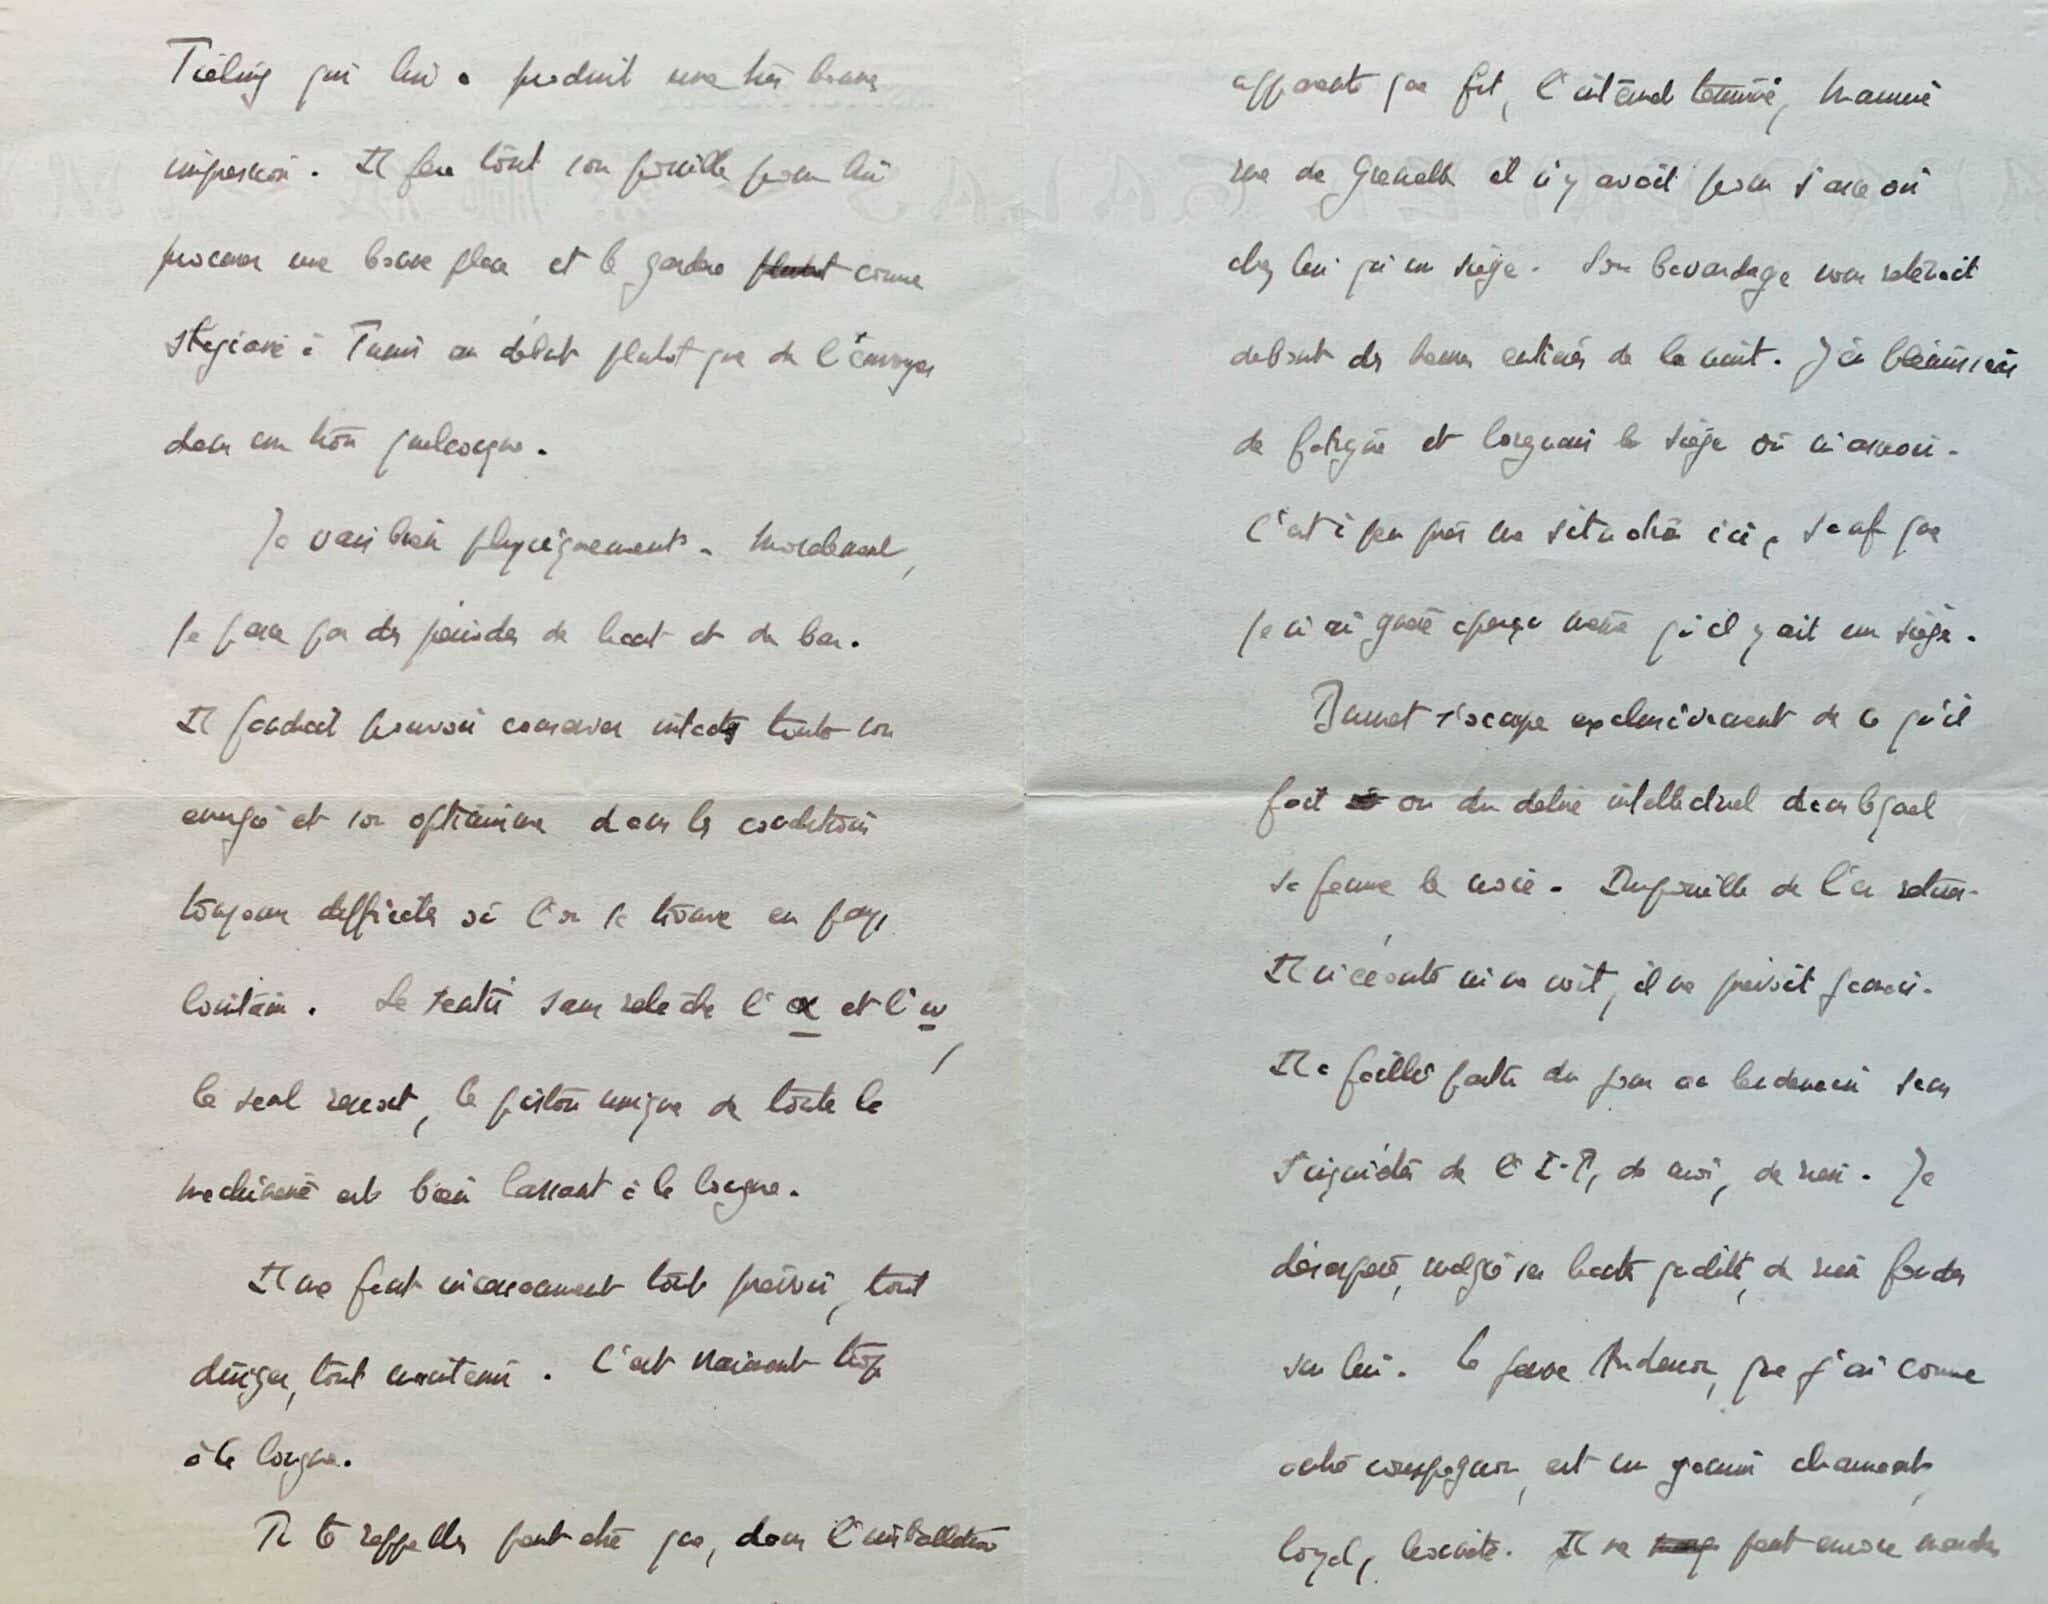 qui lui a produit une très bonne
impression. Il fera tout son possible pour lui
procurer une bonne place et le garder plutot comme
stagiaire à Tunis au début plutot que de l'envoyer
dans un trou quelconque.
Je vais bien physiquement. Moralement,
je passe par des périodes de haut et de bas.
Il faudrait pouvoir conserver intacts toute son
energie et son optimisme dans les conditions
toujours difficiles où l'on se trouve en pays
lointain. Se sentir sans relache l'α et l'ω,
le seul ressort, le piston unique de toute la
machinerie est bien lassant à la longue.
Il me faut incessamment tout prévoir, tout
diriger, tout maintenir. C'est vraiment trop
à la longue.
Tu te rappelles peut etre que, dans l'installation
apparente que fit, l'intérieur terminé, Mamine
rue de Grenelle il n'y avait pour s'asseoir
chez lui qu'un siège. Son bavardage nous retenait
debout des heures entières de la nuit. J'en
de fatigue et lorgnais le siège où m'asseoir.
C'est à peu près ma situation ici, sauf que
je n'ai guère aperçu même qu'il y ait un siège.
Burnet s'occupe exclusivement de ce qu'il
fait ou du délire intellectuel dans lequel
se ferme le noie. Impossible de l'en retirer.
Il n'écoute ni ne voit, il ne prévoit jamais.
Il a failli partir du jour au lendemain sans
s'inquiéter de l'I.P, de moi, de rien. Je
désespère, malgré ses hautes qualités, de rien fonder
sur lui. Le jeune Anderson, que j'ai comme
autre compagnon, est un gamin charmant,
loyal, . Il ne peut encore